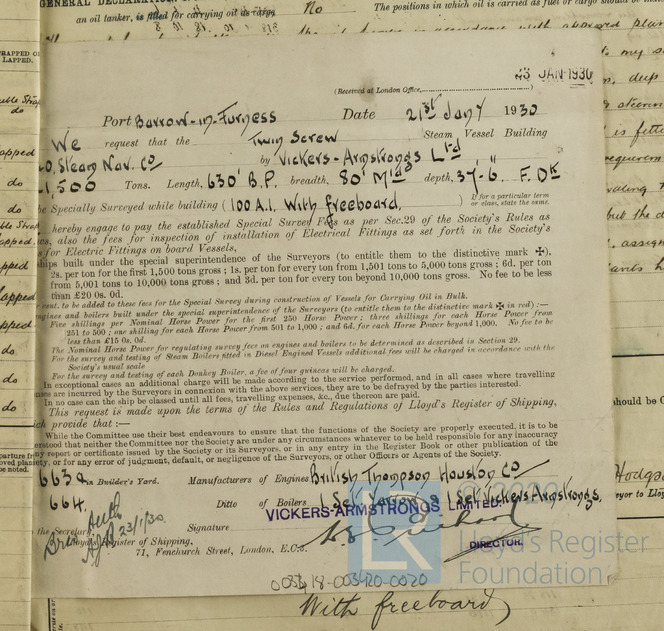 GENERAL DECLARATION
an oil tanker, is fitted for carrying oil as cargo No The positions in which oil is carried as fuel or cargo should be
in accordance with approved plan
23 JAN 1930
(Received at London Office,
Port Barrow-in-Furness Date 21st Jany 1930
We request that the Twin Screw Steam Vessel Building
O. Steam Nav. Co by Vickers-Armstrongs Ltd
1,500 Tons. Length, 630' B.P. breadth, 80' Mld depth, 37'-6" F. Dk
be Specially Surveyed while building (100 A.1. With freeboard. ) If for a particular term or class, state the same.
hereby engage to pay the established Special Survey Fees as per Sec.29 of the Society's Rules as
es, also the fees for inspection of installation of Electrical Fittings as set forth in the Society's
s for Electric Fittings on board Vessels.
hips built under the special superintendence of the Surveyors (to entitle them to the distinctive mark ✠).
2s. per ton for the first 1,500 tons gross; 1s. per ton for every ton from 1,501 tons to 5,000 tons gross; 6d. per ton
from 5,001 tons to 10,000 tons gross; and 3d. per ton for every ton beyond 10,000 tons gross. No fee to be less
than £20 0s. 0d.
cent. to be added to these fees for the Special Survey during construction of Vessels for Carrying Oil in Bulk.
ngines and boilers built under the special superintendence of the Surveyors (to entitle them to the distinctive mark ✠ in red) :—
Five shillings per Nominal Horse Power for the first 250 Horse Power; three shillings for each Horse Power from
251 to 500; one shilling for each Horse Power from 501 to 1,000; and 6d. for each Horse Power beyond 1,000. No fee to be
less than £15 0s. 0d.
The Nominal Horse Power for regulating survey fee on engines and boilers to be determined as described in Section 29.
For the survey and testing of Steam Boilers fitted in Diesel Engined Vessels additional fees will be charged in accordance with the
Society's usual scale
For the survey and testing of each Donkey Boiler, a fee of four guineas will be charged.
In exceptional cases an additional charge will be made according to the service performed, and in all cases where travelling
ses are incurred by the Surveyors in connection with the above services, they are to be defrayed by the parties interested.
In no case can the ship be classed until all fees, travelling expenses, &c., due thereon are paid.
This request is made upon the terms of the Rules and Regulations of Lloyd's Register of Shipping,
ch provide that :—
While the Committee use their best endeavours to ensure that the functions of the Society are properly executed, it is to be
erstood that neither the Committee nor the Society are under any circumstances whatever to be held responsible for any inaccuracy
ny report or certificate issued by the Society or its Surveyors, or in any entry in the Register Book or other publication of the
ety, or for any error of judgment, default, or negligence of the Surveyors, or other Officers or Agents of the Society.
663 in Builder's Yard. Manufacturers of Engines British Thompson Houston Co
664. Ditto of Boilers 1 Set Yarrow & 1 Set Vickers Armstrongs,
VICKERS-ARMSTRONGS LIMITED.
the Secretary, Signature
Lloyd's Register of Shipping, DIRECTOR.
23/1/30.
71, Fenchurch Street, London, E.C.3.
003418-003420-0020
With freeboard
Lloyd's Register
Foundation